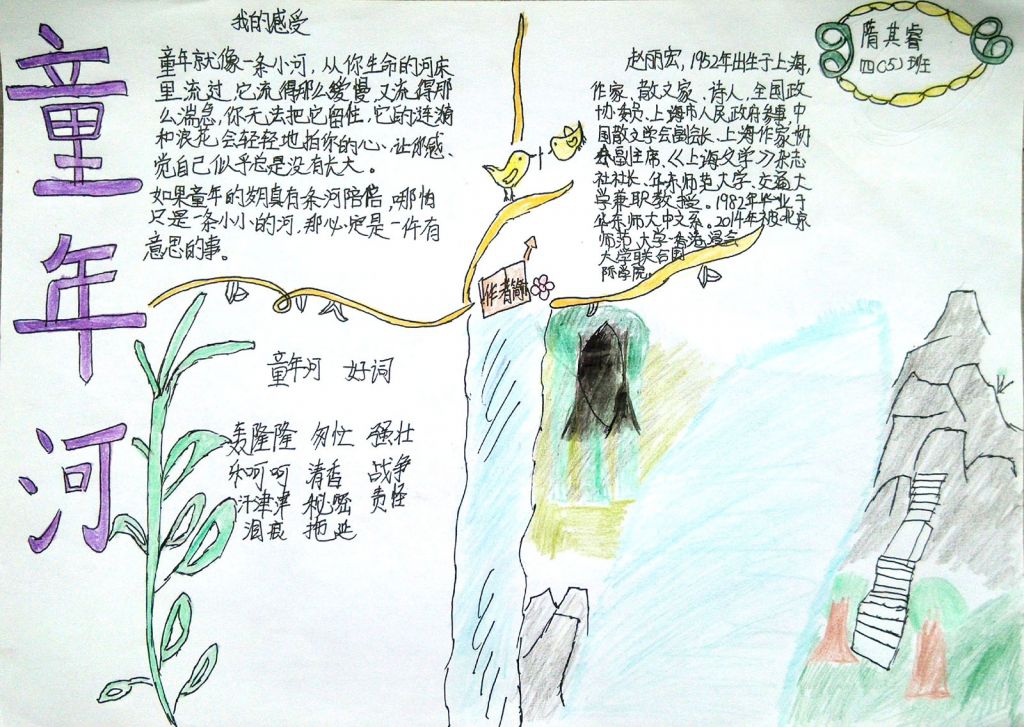 童年河
我的感受
童年就像一条小河，从你生命的河床
里流过，它流得那么缓慢，又流得那
么湍急，你无法把它留住，它的涟漪
和浪花会轻轻地拍你的心、让那感、
觉自己似乎总是没有长大。
如果童年的岁月真有条河陪伴，哪怕
只是一条小小的河，那必定是一件有
意思的事。
童年河 好词
轰隆隆 匆忙 强壮
乐呵呵 清香 战争
汗津津 秘密 责怪
泪痕 拖延
作者简介
赵丽宏，1952年出生于上海，
作家、散文家、诗人、全国政
协委员、上海市人民政府参事，中
国散文学会副会长、上海作家协
会副主席、《上海文学》杂志
社社长、华东师范大学、交通大
学兼职教授。1982年毕业于
华东师大中文系。2014年被北京
师范大学-香港浸会
大学联合国
际学院。
隋其睿
四(5)班